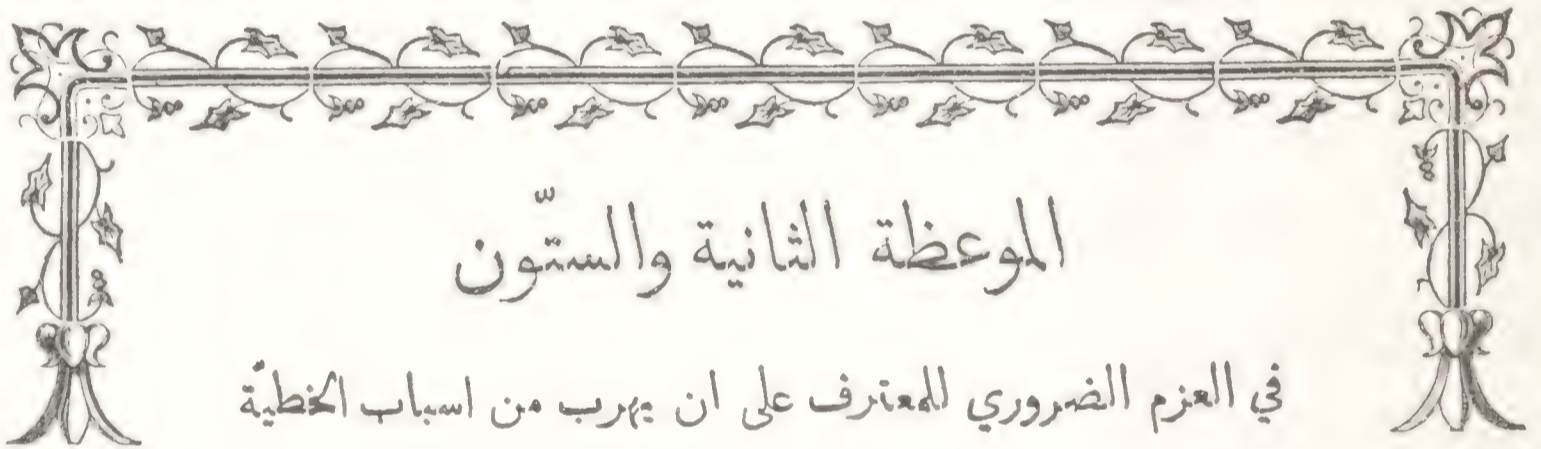 الموعظة الثانية والستّون
في العزم الضروري للمعترف على ان يهرب من اسباب الخطيّة